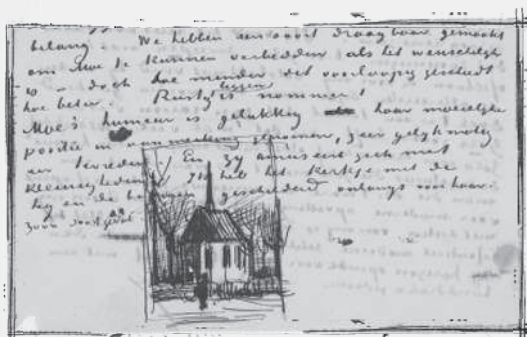 belang. We hebben een soort draagbaar gemaakt
om Moe te kunnen verbedden als het wenschelyk
is – doch hoe minder dit voorloopig geschiedt
hoe beter. Rustig liggen is nommer 1
Moe's humeur is gelukkig haar moeielyke
positie in aanmerking genomen, zeer gelykmatig
en tevreden. En zy amuseert zich met
kleinigheden Ik heb het kerkje met de
heg en de boomen geschilderd onlangs voor haar
zoo'n